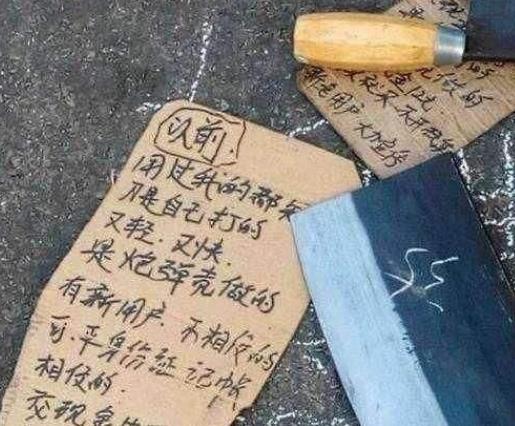 以前
用过我的都知
刀是自己打的
又轻.又快.
是炮弹壳做的
有新用户.不相信的
可.平身份证记帐
相信的.
交现金
做的
新老用户大力宣传